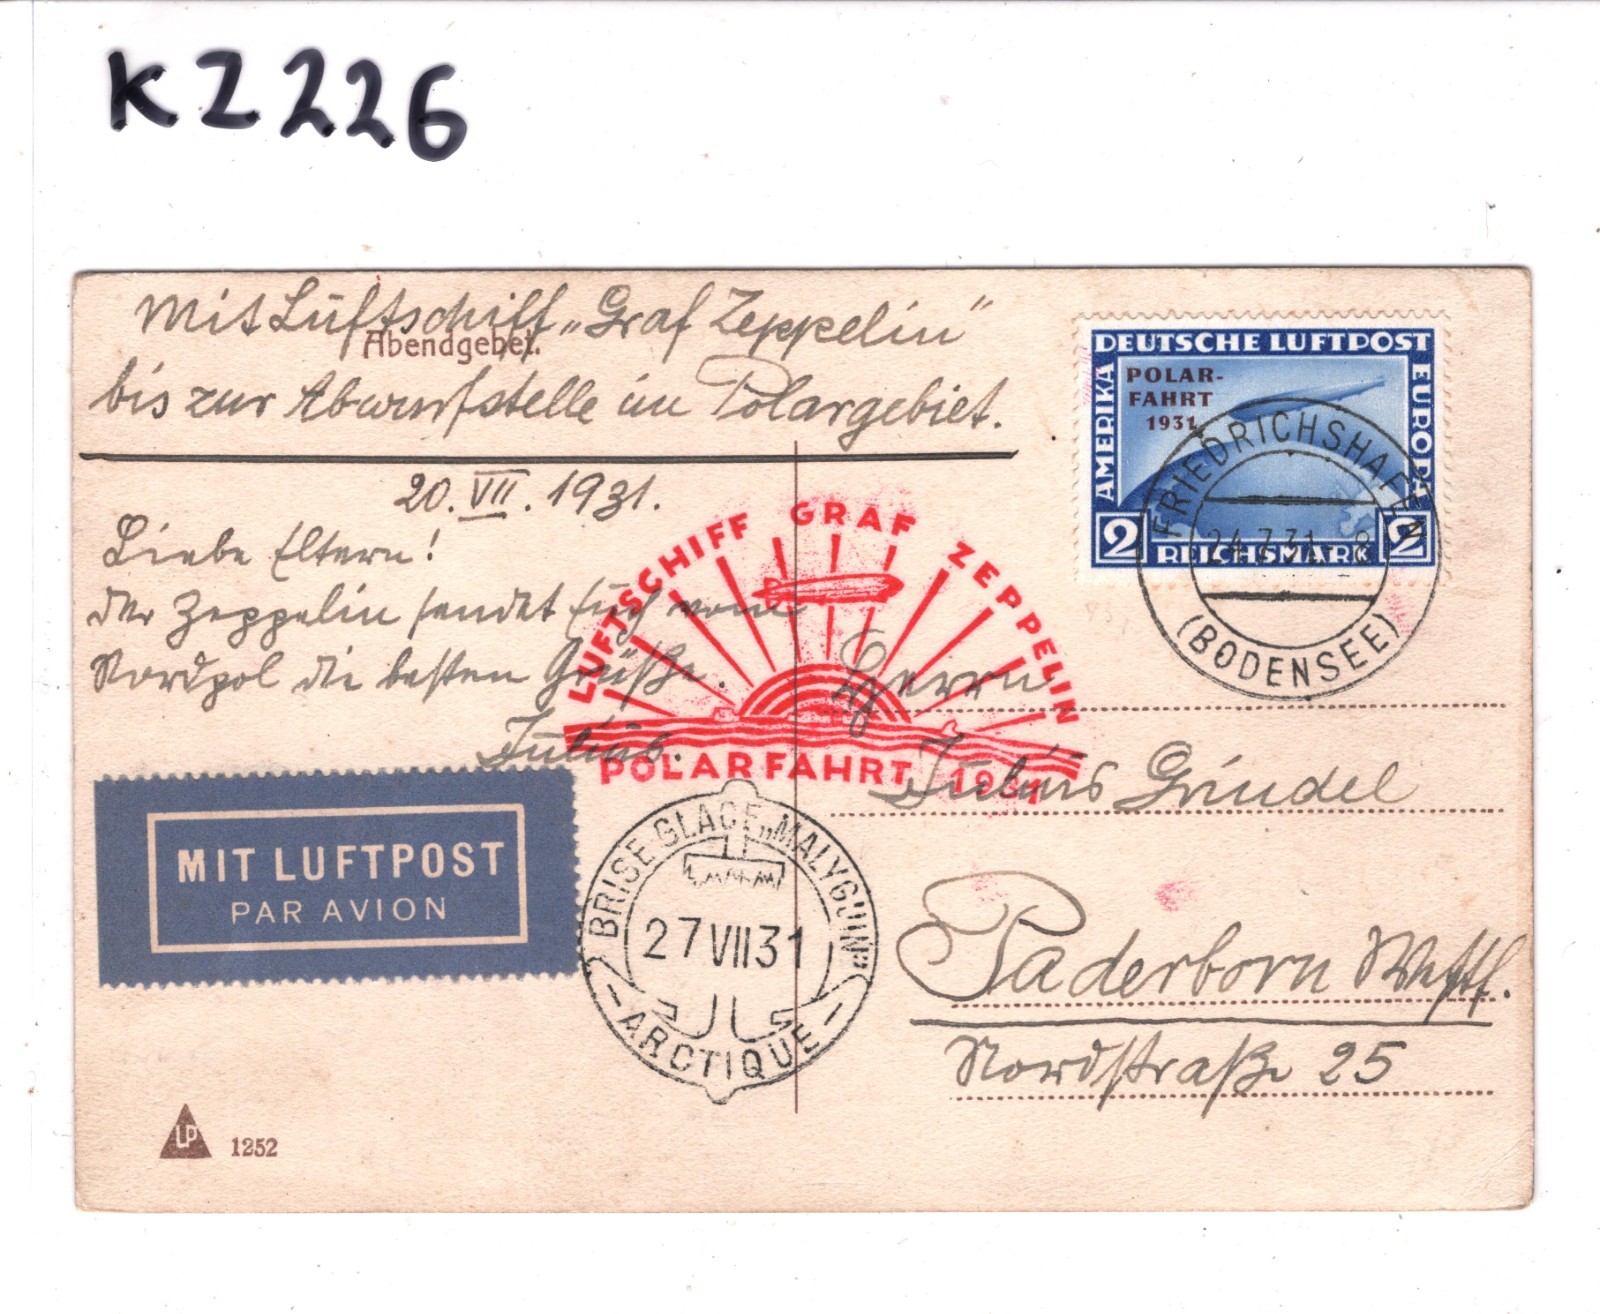 KZ226
Mit Luftschiff „Graf Zeppelin“
Abendgebet.
bis zur Abwurfstelle im Polargebiet.
20. VII. 1931.
Liebe Eltern!
Der Zeppelin sendet Euch vom
Nordpol die besten Grüße.
Julius.
MIT LUFTPOST
PAR AVION
LP 1252
LUFTSCHIFF GRAF ZEPPELIN
POLARFAHRT 1931
BRISE GLACE „MALYGUIN“
27 VII 31
– ARCTIQUE –
DEUTSCHE LUFTPOST
AMERIKA
EUROPA
POLAR-
FAHRT
1931
2 REICHSMARK 2
FRIEDRICHSHAFEN
24.7.31. 8
(BODENSEE)
Herrn
Julius Gründel
Paderborn Westf.
Nordstraße 25